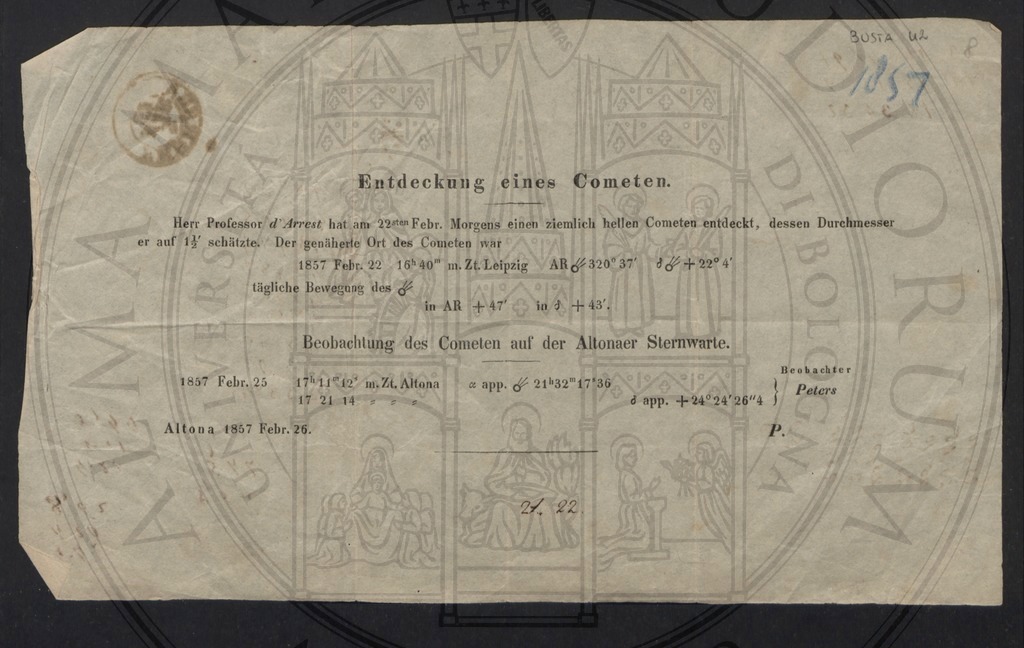 BUSTA 42
8
1857
Entdeckung eines Cometen.
Herr Professor d'Arrest hat am 22sten Febr. Morgens einen ziemlich hellen Cometen entdeckt, dessen Durchmesser
er auf 1½′ schätzte. Der genäherte Ort des Cometen war
1857 Febr. 22 16h 40m m. Zt. Leipzig AR ☄ 320° 37′ δ ☄ + 22° 4′
tägliche Bewegung des ☄
in AR + 47′ in δ + 43′.
Beobachtung des Cometen auf der Altonaer Sternwarte.
Beobachter
1857 Febr. 25 17h 11m 12s m. Zt. Altona α app. ☄ 21h 32m 17s 36
Peters
17 21 14 „ „ „ δ app. + 24° 24′ 26″ 4
Altona 1857 Febr. 26. P.
21. 22.
ALMA MATER STUDIORUM
UNIVERSITÀ DI BOLOGNA
LIBERTAS